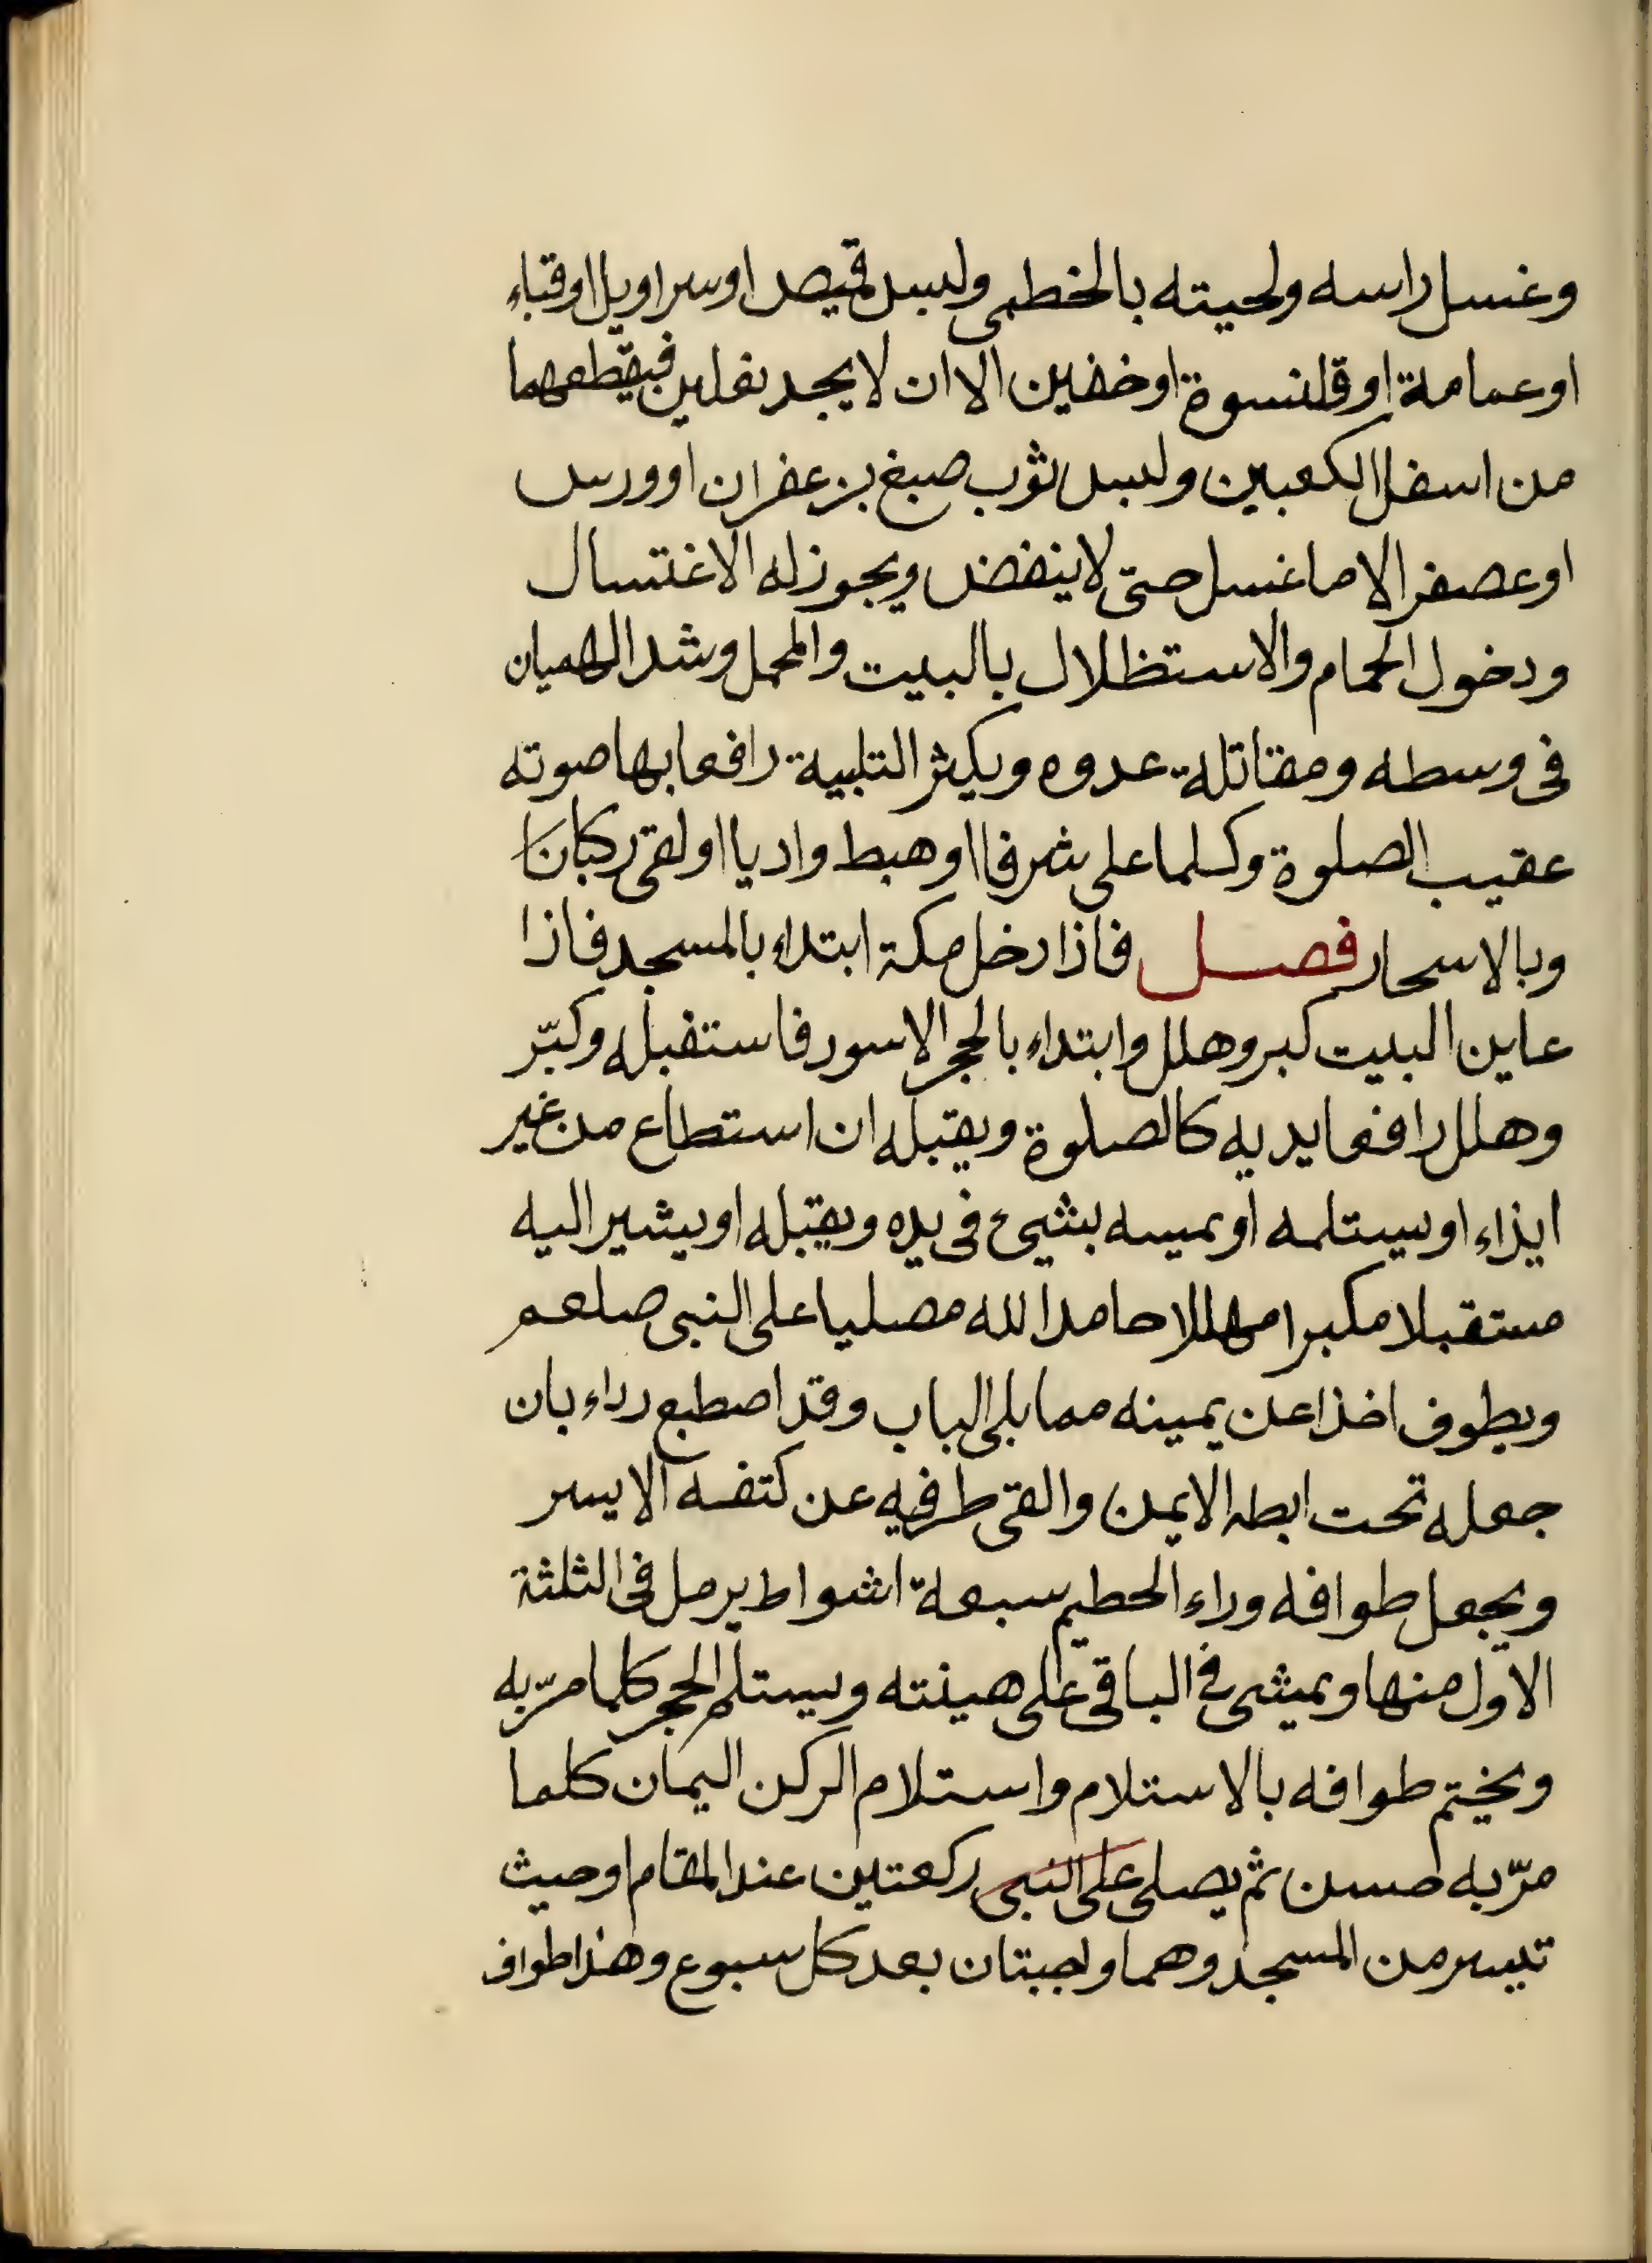 وغسل راسه ولحيته بالخطمى ولبس قميص او سراويل او قباء
او عمامة او قلنسوة او خفين الا ان لا يجد نعلين فيقطعهما
من اسفل الكعبين ولبس ثوب صبغ بزعفران او ورس
او عصفر الا ما غسل حتى لا ينفض ويجوز له الاغتسال
ودخول الحمام والاستظلال بالبيت والمحمل وشد الهميان
فى وسطه ومقاتلة عدوه ويكثر التلبية رافعا بها صوته
عقيب الصلوة وكلما على شرفا او هبط واديا او لقى ركبانا
وبالاسحار فصل فاذا دخل مكة ابتداء بالمسجد فاذا
عاين البيت كبر وهلل وابتداء بالحجر الاسود فاستقبله وكبّر
وهلل رافعا يديه كالصلوة ويقبله ان استطاع من غير
ايذاء او يستلمه او يمسه بشيئ فى يده ويقبله او يشير اليه
مستقبلا مكبرا مهللا حامدا لله مصليا على النبى صلعم
ويطوف اخذا عن يمينه مما يلى الباب وقد اصطبع رداء بان
جعله تحت ابطه الايمن والقى طرفيه عن كتفه الايسر
ويجعل طوافه وراء الحطيم سبعة اشواط يرمل فى الثلثة
الاول منها ويمشى فى الباقى على هينته ويستلم الحجر كلما مرّ به
ويختم طوافه بالاستلام واستلام الركن اليمان كلما
مرّ به حسن ثم يصلى على النبى ركعتين عند المقام او حيث
تيسر من المسجد وهما واجبتان بعد كل سبوع وهذا طواف